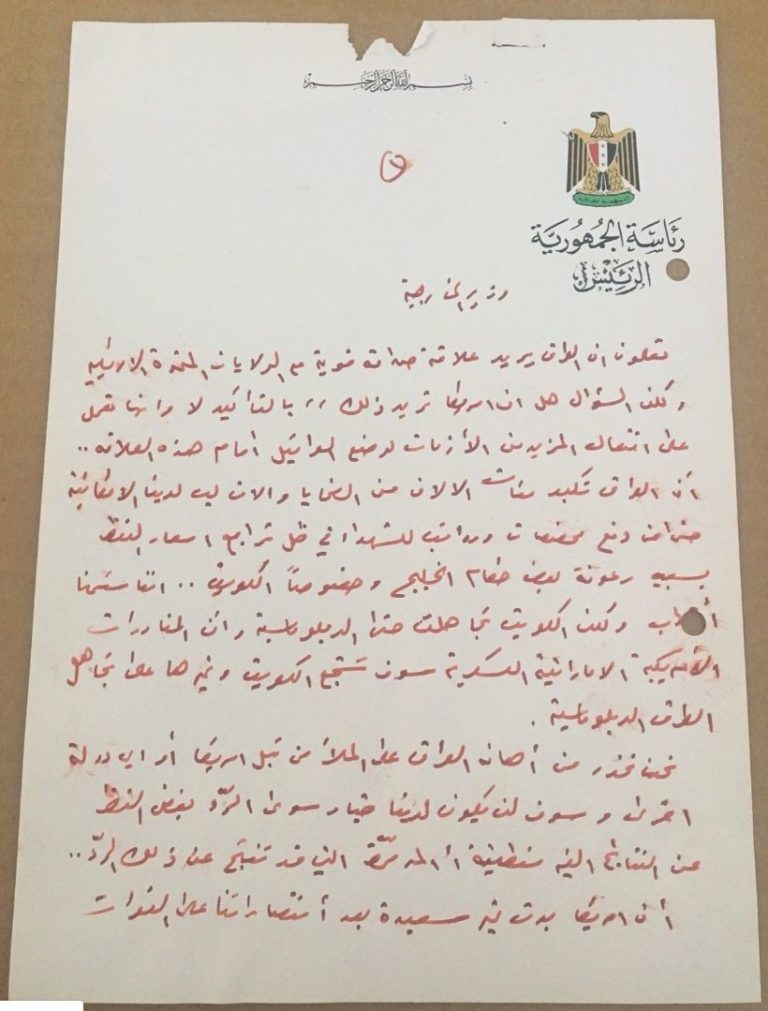 بسم الله الرحمن الرحيم
رئاسة الجمهورية
الرئيس
وزير الخارجية
تعلمون ان العراق يريد علاقة صداقة قوية مع الولايات المتحدة الامريكيه
ولكن السؤال هل ان امريكا تريد ذلك ،، بالتأكيد لا وانها تعمل
على افتعال المزيد من الأزمات لوضع العراقيل أمام هذه العلاقه ..
أن العراق تكبد مئات الالاف من الضحايا والان ليس لدينا الامكانية
حتى من دفع مخصصات ورواتب للشهداء في ظل تراجع اسعار النفط
بسبب رعونة بعض حكام الخليج وخصوصاً الكويت .. اننا
ولكن الكويت تجاهلت حتى الدبلوماسية وان المناورات
الأمريكية الاماراتية العسكرية سوف تشجع الكويت وغيرها على تجاهل
الطرق الدبلوماسية .
نحن نحذر من أهان العراق على الملأ من قبل امريكا أو اي دولة
اخرى وسوف لن يكون لدينا خيار سوى الردّ بغض النظر
عن النتائج الغير منطقية أ المدمرّة التي قد تنتج عن ذلك الردّ ..
أن امريكا بدت غير سعيدة بعد أنتصاراتنا على القوات